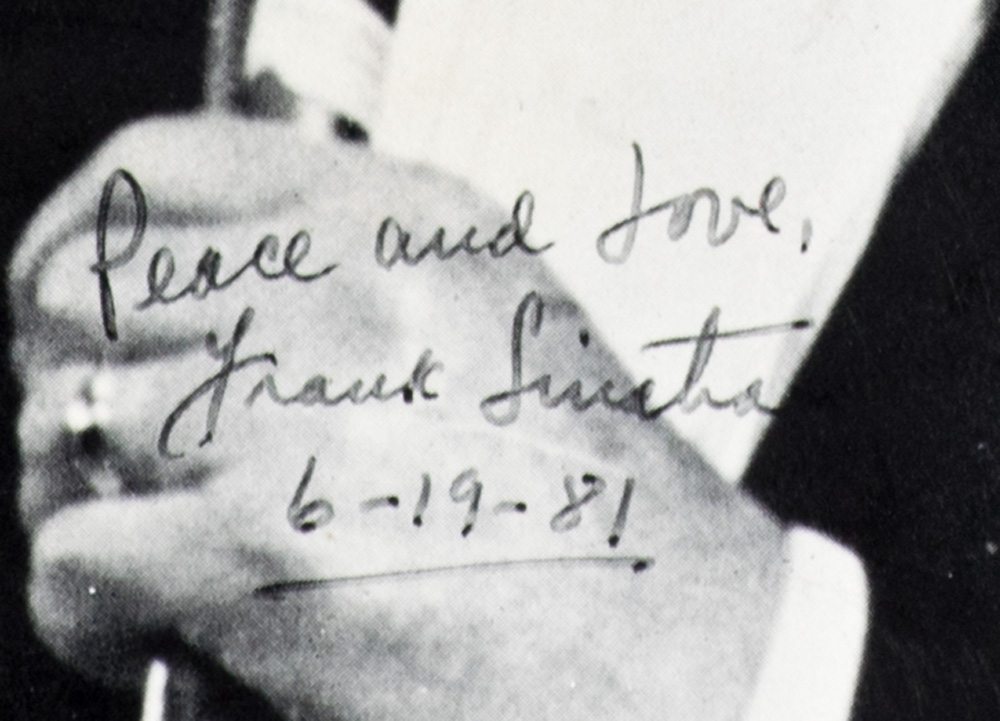 Peace and Love,
Frank Sinatra
6-19-81